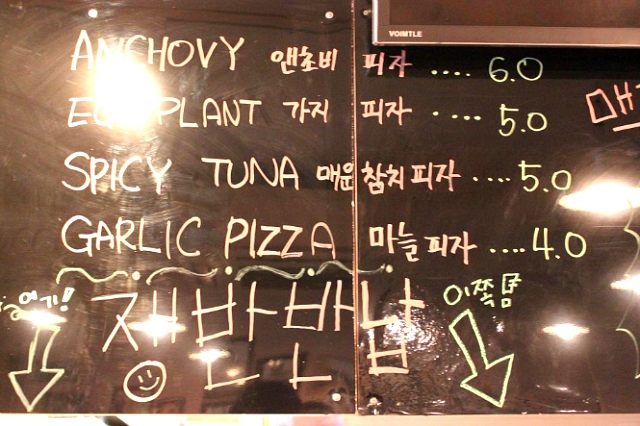 VOIMTLE
ANCHOVY 앤초비 피자 .... 6.0
EGGPLANT 가지 피자 .... 5.0
SPICY TUNA 매운 참치 피자 .... 5.0
GARLIC PIZZA 마늘 피자 .... 4.0
여기!
쟁반반납
이쪽